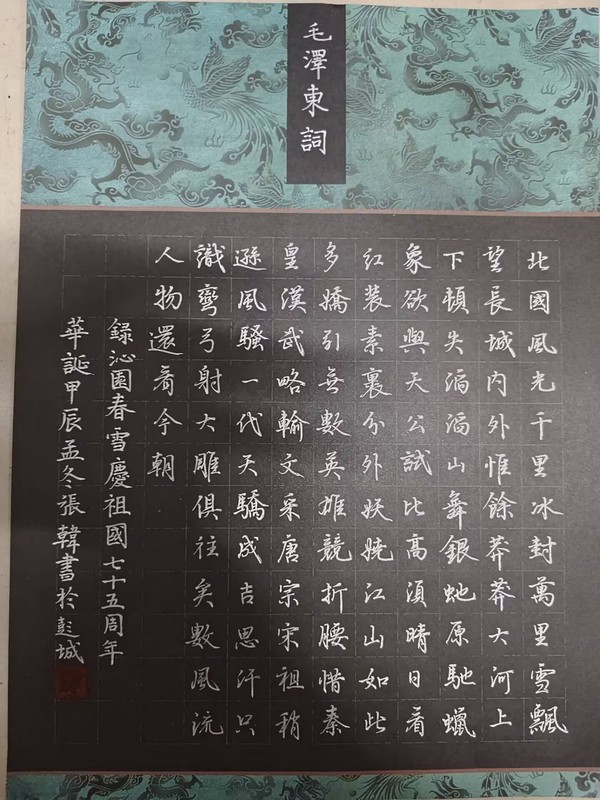 毛澤東詞
北國風光千里冰封萬里雪飄
望長城内外惟餘莽莽大河上
下頓失滔滔山舞銀虵原馳蠟
象欲與天公試比高須晴日看
紅装素裹分外妖嬈江山如此
多嬌引無數英雄競折腰惜秦
皇漢武略輸文采唐宗宋祖稍
遜風騷一代天驕成吉思汗只
識彎弓射大雕俱往矣數風流
人物還看今朝
録沁園春雪慶祖國七十五周年
華誕甲辰孟冬張韓書於彭城